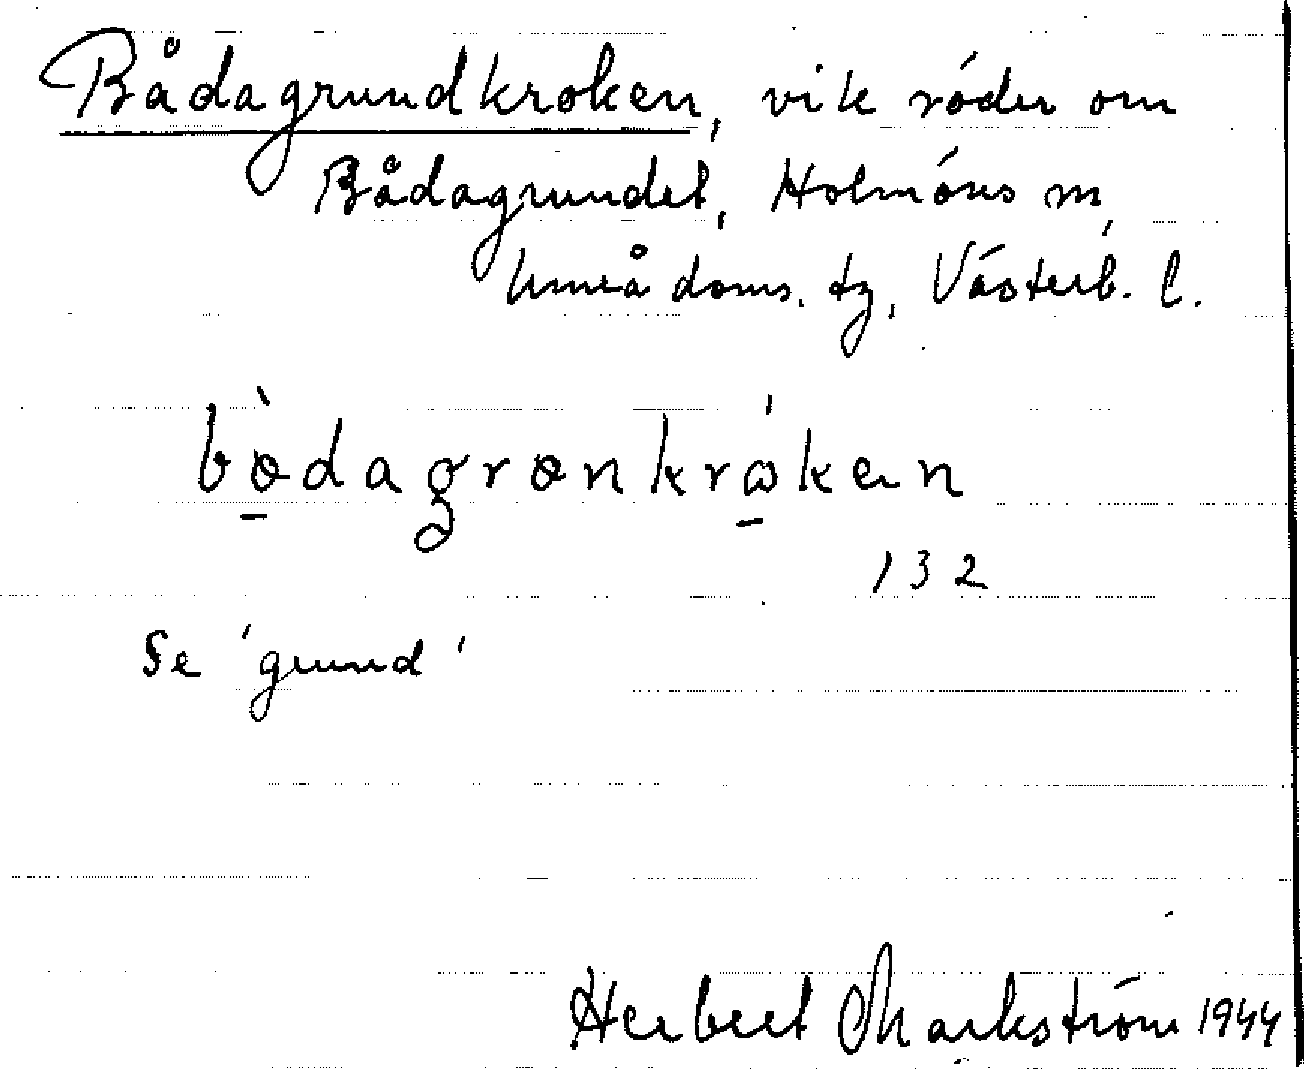 Bådagrundkroken, vik söder om
Bådagrundet, Holmöns sn,
Umeå doms. tg, Västerb. l.
bòdagronkrókan
132
Se 'grund'
Herbert Markström 1944